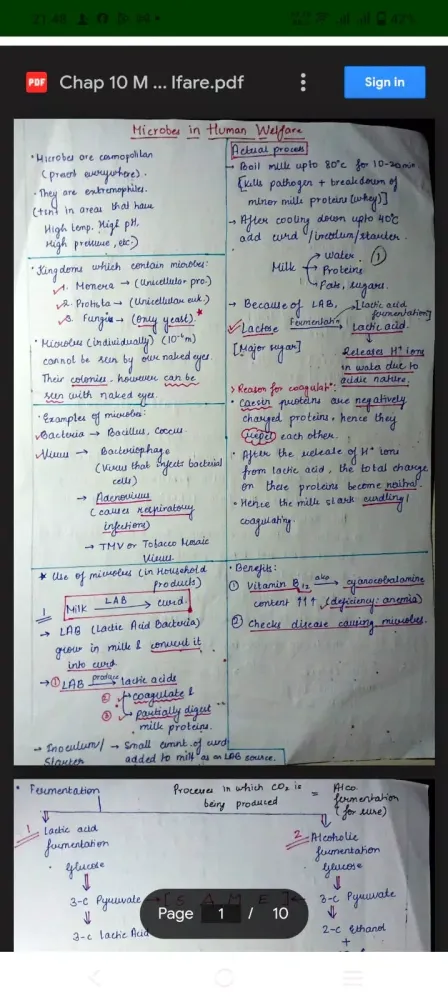 21:48
42%
PDF Chap 10 M ... lfare.pdf
Sign in
Microbes in Human Welfare
• Microbes are cosmopolitan
(present everywhere).
• They are extremophiles.
in areas that have
High temp, High pH,
High pressure, etc.)
• Kingdoms which contain microbes:
1. Monera → (Unicellular pro.)
2. Protista → (Unicellular euk.)
3. Fungi → (only yeast). *
• Microbes (individually) (10⁻⁶m)
cannot be seen by our naked eyes.
Their colonies, however can be
seen with naked eyes.
• Examples of microbes:
Bacteria → Bacillus, Coccus.
Virus → Bacteriophage
(Virus that infect bacterial
cells)
→ Adenovirus
(causes respiratory
infections)
→ TMV or Tobacco Mosaic
Virus.
* Use of microbes (in Household
products)
1 Milk LAB → curd.
→ LAB (Lactic Acid Bacteria)
grow in milk & convert it
into curd
→ ① LAB produce → lactic acids
② → coagulate &
③ → partially digest
milk proteins.
→ Inoculum/ → Small amnt. of curd
Starter added to milk as an LAB source.
Actual process
→ Boil milk upto 80°C for 10-20min
[kills pathogen + breakdown of
minor milk proteins (whey)]
→ After cooling down upto 40°C
add curd /inoculum/starter.
Milk → water ①
→ Proteins
→ Fats, sugars.
→ Because of LAB, [lactic acid
fermentation]
Lactose Fermentation → Lactic acid.
[Major sugar]
Releases H⁺ ions
in water due to
acidic nature.
> Reason for coagulatⁿ:
• Casein proteins are negatively
charged proteins, hence they
repel each other.
• After the release of H⁺ ions
from lactic acid, the total charge
on these proteins become neutral.
• Hence the milk start curdling/
coagulating.
• Benefits:
① Vitamin B₁₂ aka → cyanocobalamine
content ↑↑↑ (deficiency: anemia)
② Checks disease causing microbes.
• Fermentation Processes in which CO₂ is = Alco.
being produced fermentation
(for sure)
1 Lactic acid
fermentation
• Glucose
⇓
3-C Pyruvate → [S A M E] ←
⇓
3-C lactic Acid
2 Alcoholic
fermentation
Glucose
⇓
3-C Pyruvate
⇓
2-C Ethanol
+
Page 1 / 10